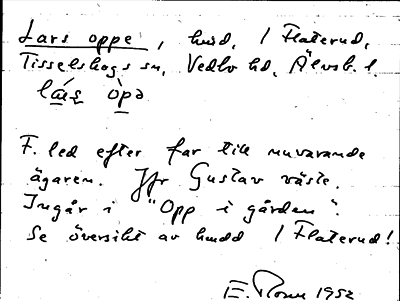 Lars oppe, hmd, 1 Flaterud,
Tisselskogs sn, Vedbo hd, Älvsb. l.
la̱ṣ òpə
F. led efter far till nuvarande
ägaren. Jfr Gustav väste.
Ingår i "Opp i gården".
Se översikt av hmdd 1 Flaterud!
E. 1952